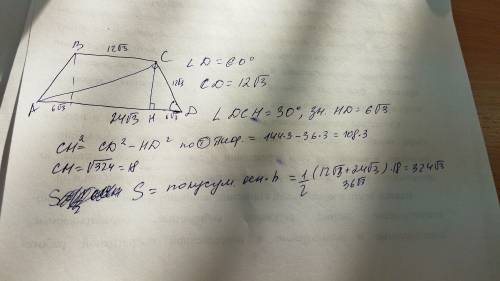 B 12√3 C
∠D = 60°
12√3
CD = 12√3
A 6√3 24√3 H 6√3 D
∠DCH = 30°, зн. HD = 6√3
CH² = CD² − HD² по Т Пиф. = 144·3 − 36·3 = 108·3
CH = √324 = 18
S = полусум. осн·h = 1/2 (12√3 + 24√3)·18 = 324√3
36√3